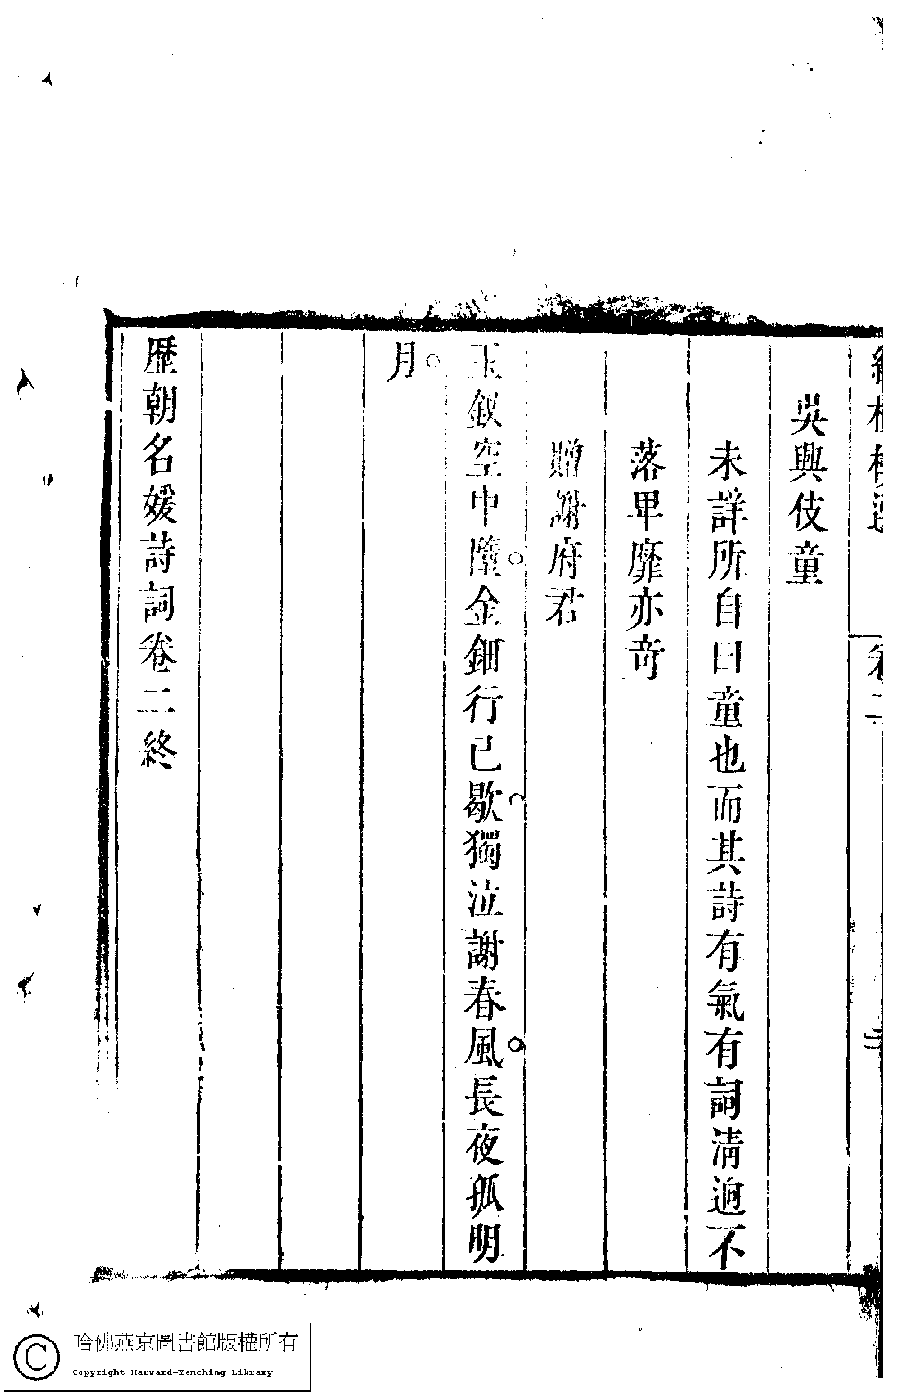 卷二
吳興伎童
未詳所自曰童也而其詩有氣有詞清迥不
落卑靡亦奇
贈謝府君
玉釵空中墮金鈿行已歇獨泣謝春風長夜孤明
月
歷朝名媛詩詞卷二終
哈佛燕京圖書館版權所有
Copyright Harvard-Yenching Library